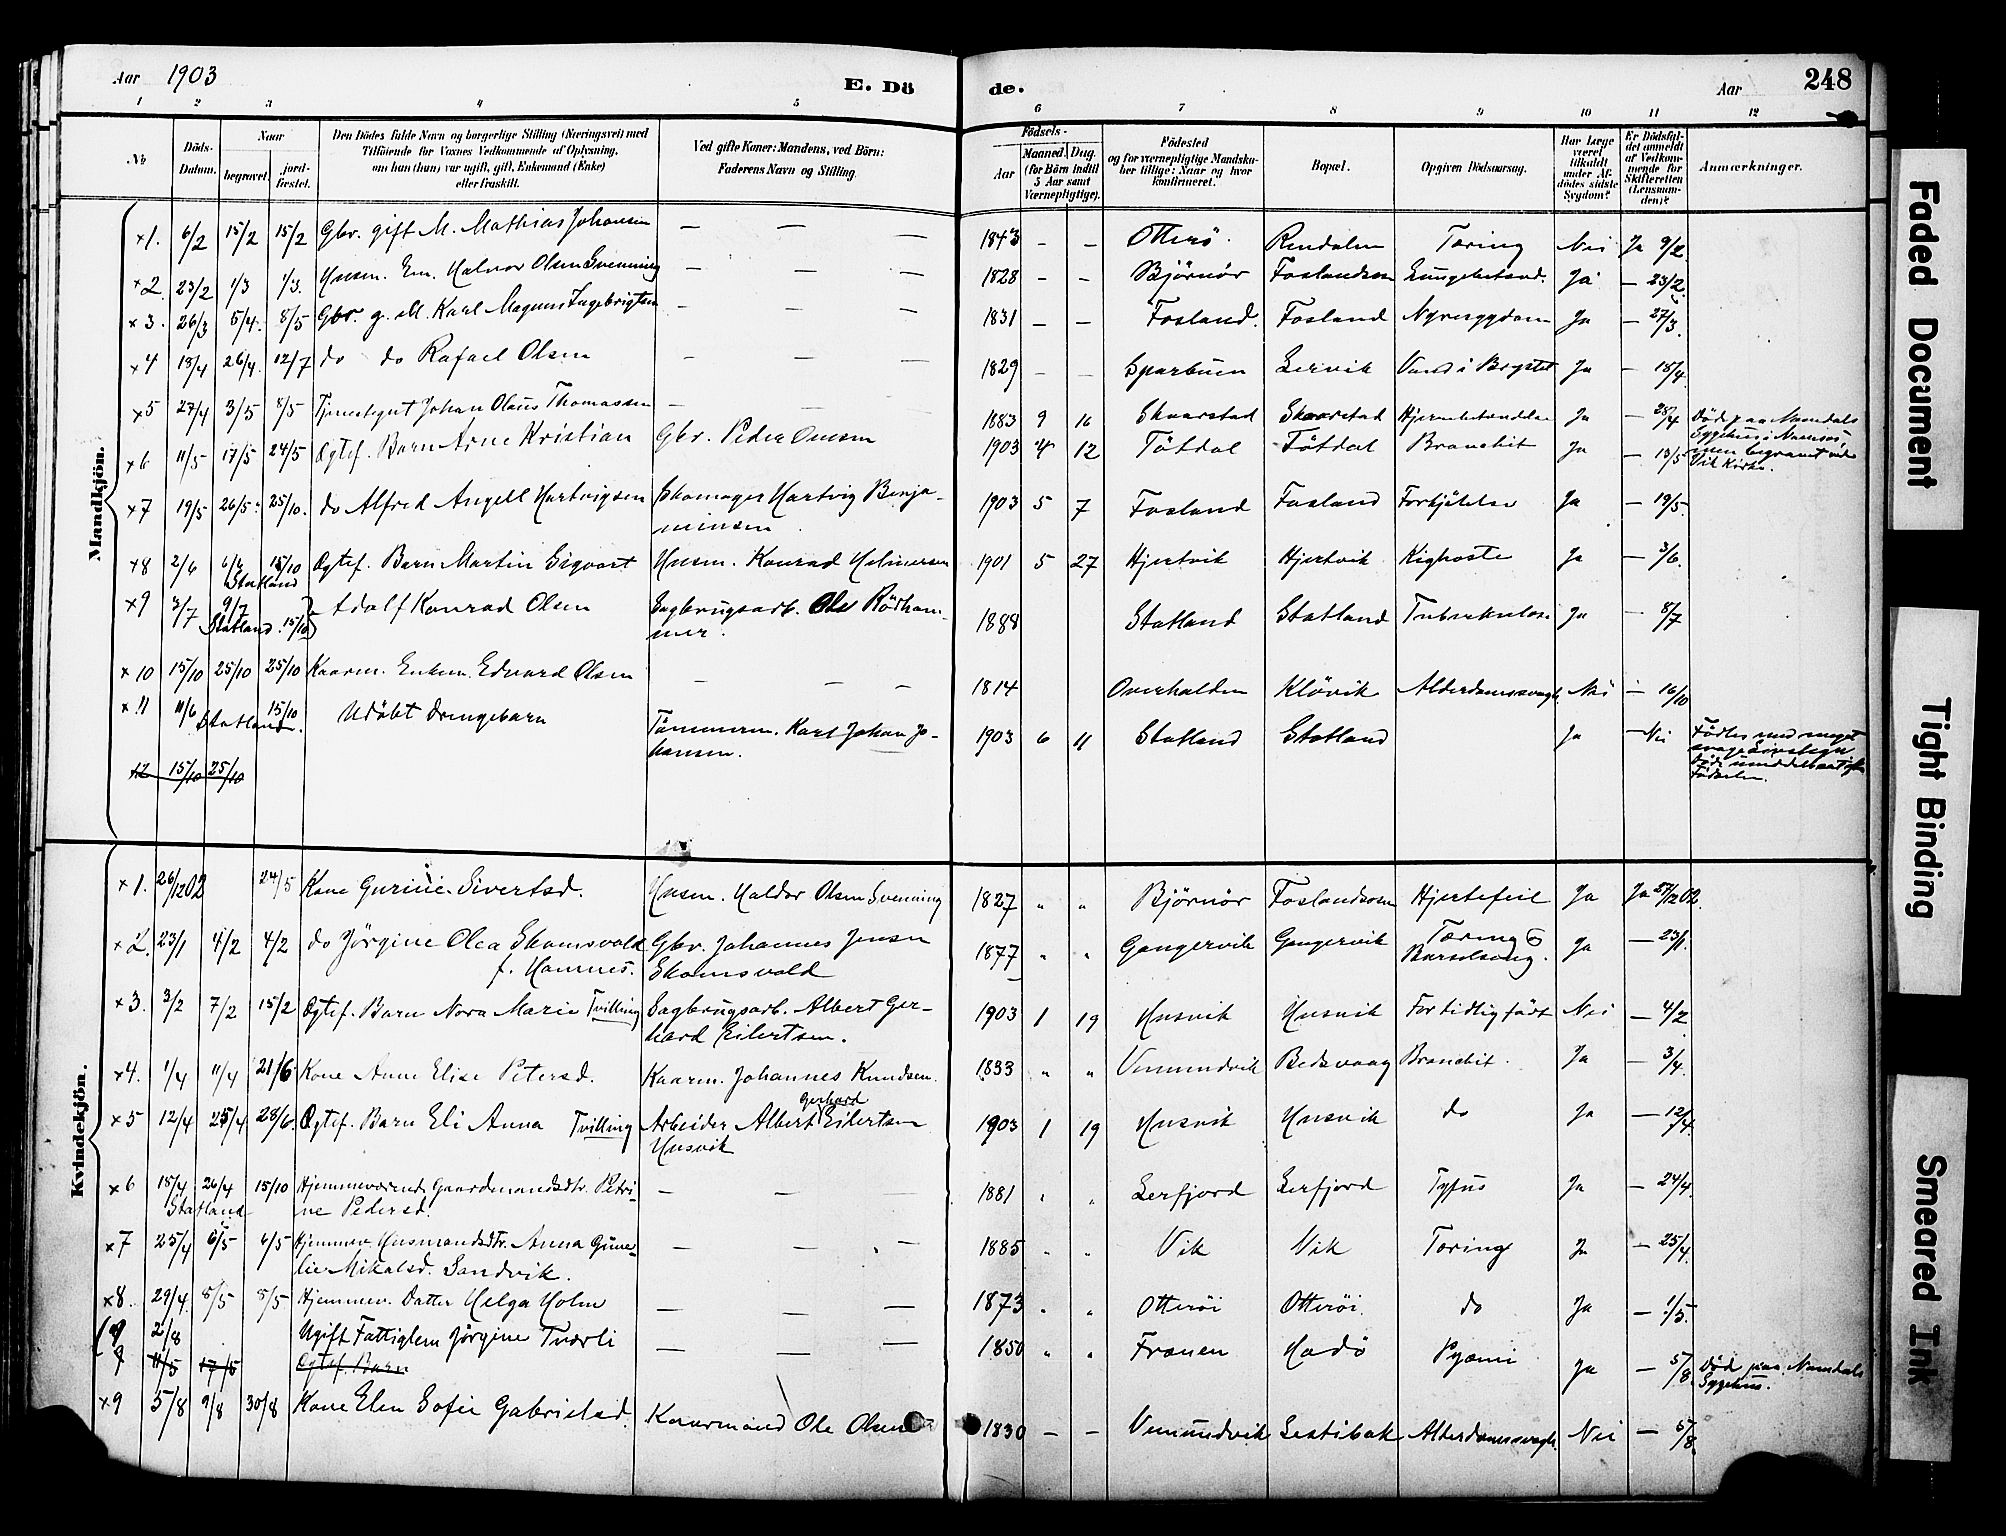 Aar 1903 E. Dö
de. Aar 248
1 2 3 4 5 6 7 8 9 10 11 12
No Döds-Datum. Naar begravet. jordfæstet. Den Dödes fulde Navn og borgerlige Stilling (Næringsvei) med Tilföiende for Voxnes Vedkommende af Oplysning, om han (hun) var ugift, gift, Enkemand (Enke) eller fraskilt. Ved gifte Koner: Mandens, ved Börn: Faderens Navn og Stilling. Födsels- Aar Maaned. Dag. (for Börn indtil 5 Aar samt Værnepligtige). Födested og for værnepligtige Mandskaber tillige: Naar og hvor konfirmeret. Bopæl. Opgiven Dödsaarsag. Har Læge været tilkaldt under Afdödes sidste Sygdom? Er Dödsfaldet anmeldt af Vedkommende for Skifteretten (Lensmanden)? Anmærkninger.
Mandkjön.
x1. 6/2 15/2 15/2 Gbr. gift M. Mathias Johansen — — — 1843 — — Otterö. Rendalen Tæring Nei Ja 9/2
x2. 23/2 1/3 1/3. Husm. Em. Halvor Olsen Svenning — — — 1828 — — Bjørnør Foslandsosen Lungebetænd. Ja — 23/2.
x3. 26/3 5/4. 8/5 Gbr. g. M. Karl Magnus Ingebrigtsen — — — 1831 — — Fosland. Fosland Nyresygdom Ja — 27/3.
x4 13/4 26/4. 12/7 do do Rafael Olsen — — — 1829 — — Sparbuen Lervik Vand i Brystet Ja — 15/4.
x5 27/4 3/5 8/5 Tjenestegut Johan Olaus Thomassen — — — 1883 9 16 Skaarstad Skaarstad Hjernebetændelse Ja — 28/4 Död paa Namdals
Sygehus i Namsos,
men begravet ved
Vik Kirke.
x6 11/5 17/5 24/5 Ægtef. Barn Arne Kristian Gbr. Peder Ovesen 1903 4 12 Tötdal Tötdal Bronchit Ja — 13/5
x7 19/5 26/5. 25/10. do Alfred Angell Hartvigsen Skomager Hartvig Benja-
minsen. 1903 5 7 Fosland Fosland Forkjölelse Ja — 19/5.
x8 2/6 6/6 15/10 Ægtef. Barn Martin Sigvart Husm. Konrad Halmersen 1901 5 27 Hjertvik Hjertvik Kighoste Ja — 3/6.
Statland
x9 3/7 9/7 Adolf Konrad Olsen Sagbrugsarb. Ole Rödham-
mer. 1888 Statland Statland Tuberkulose Ja — 8/7
Statland. 15/10
x10 15/10 25/10 25/10 Kaarm. Enkem. Edvard Olsen — — — 1814 Overhalden Klövik Alderdomssvagh. Nei — 16/10
x11 11/6 15/10 Udöbt Drengebarn Tömmerm. Karl Johan Jo-
hansen. 1903 6 11 Statland Statland Ja — Nei Födtes med meget
svage Livstegn
döde umiddelbart efter
Födselen.
Statland.
12 15/10 25/10
Kvindekjön.
x1. 26/12 02 24/5 Kone Gurine Sivertsd. Husm. Haldor Olsen Svenning 1827 " " Bjørnør Foslandsosen Hjertefeil Ja Ja 27/12 02.
x2. 23/1 4/2 4/2 do Jörgine Olea Skomsvold
f. Hannes. Gbr. Johannes Jensen
Skomsvold 1877 " " Gangervik Gangervik Tæring &
Barselseng. Ja — 23/1.
x3. 3/2 7/2 15/2 Ægtef. Barn Nora Marie Tvilling Sagbrugsarb. Albert Ger-
hard Eilertsen. 1903 1 19 Husvik Husvik For tidlig födt Nei — 4/2
x4. 1/4 11/4 21/6 Kone Anne Elise Petersd. Kaarm. Johannes Knudsen. 1833 " " Vemundvik Bedsvaag Bronchit. Ja — 3/4.
x5 12/4 25/4 28/6. Ægtef. Barn Eli Anna Tvilling Arbeider Albert Gerhard Eilertsen
Husvik 1903 1 19 Husvik Husvik do Ja — 12/4.
x6 18/4 26/4 15/10 Hjemmeværende Gaardmandsdtr. Petri-
Statland ne Pedersd. — — — 1881 " " Lerfjord Lerfjord Tyfus Ja — 24/4.
x7 25/4 6/5 6/5 Hjemmev. Husmandsdtr. Anna Gune-
lie Mikalsd. Sandvik. — — — 1885 " " Vik Vik Tæring Ja — 25/4.
x8. 29/4. 5/5 5/5 Hjemmev. Datter Helga Holm — — — 1873 " " Otteröi Otteröi. do Ja — 1/5.
9 2/8 Ugift Fattiglem Jørgine Tværli — — — 1850 " " Frauen Hadö Pyæmi Ja — 5/8. Död paa Namdals
Sygehus.
9 11/5 17/5 Ægtef. Barn
x9 5/8 9/8 30/8 Kone Elen Sofie Gabrielsd. Kaarmand Ole Olsen 1830 — — Vemundvik Lestibak Alderdomssvagh. Nei — 6/8
Faded Document
Tight Binding
Smeared Ink